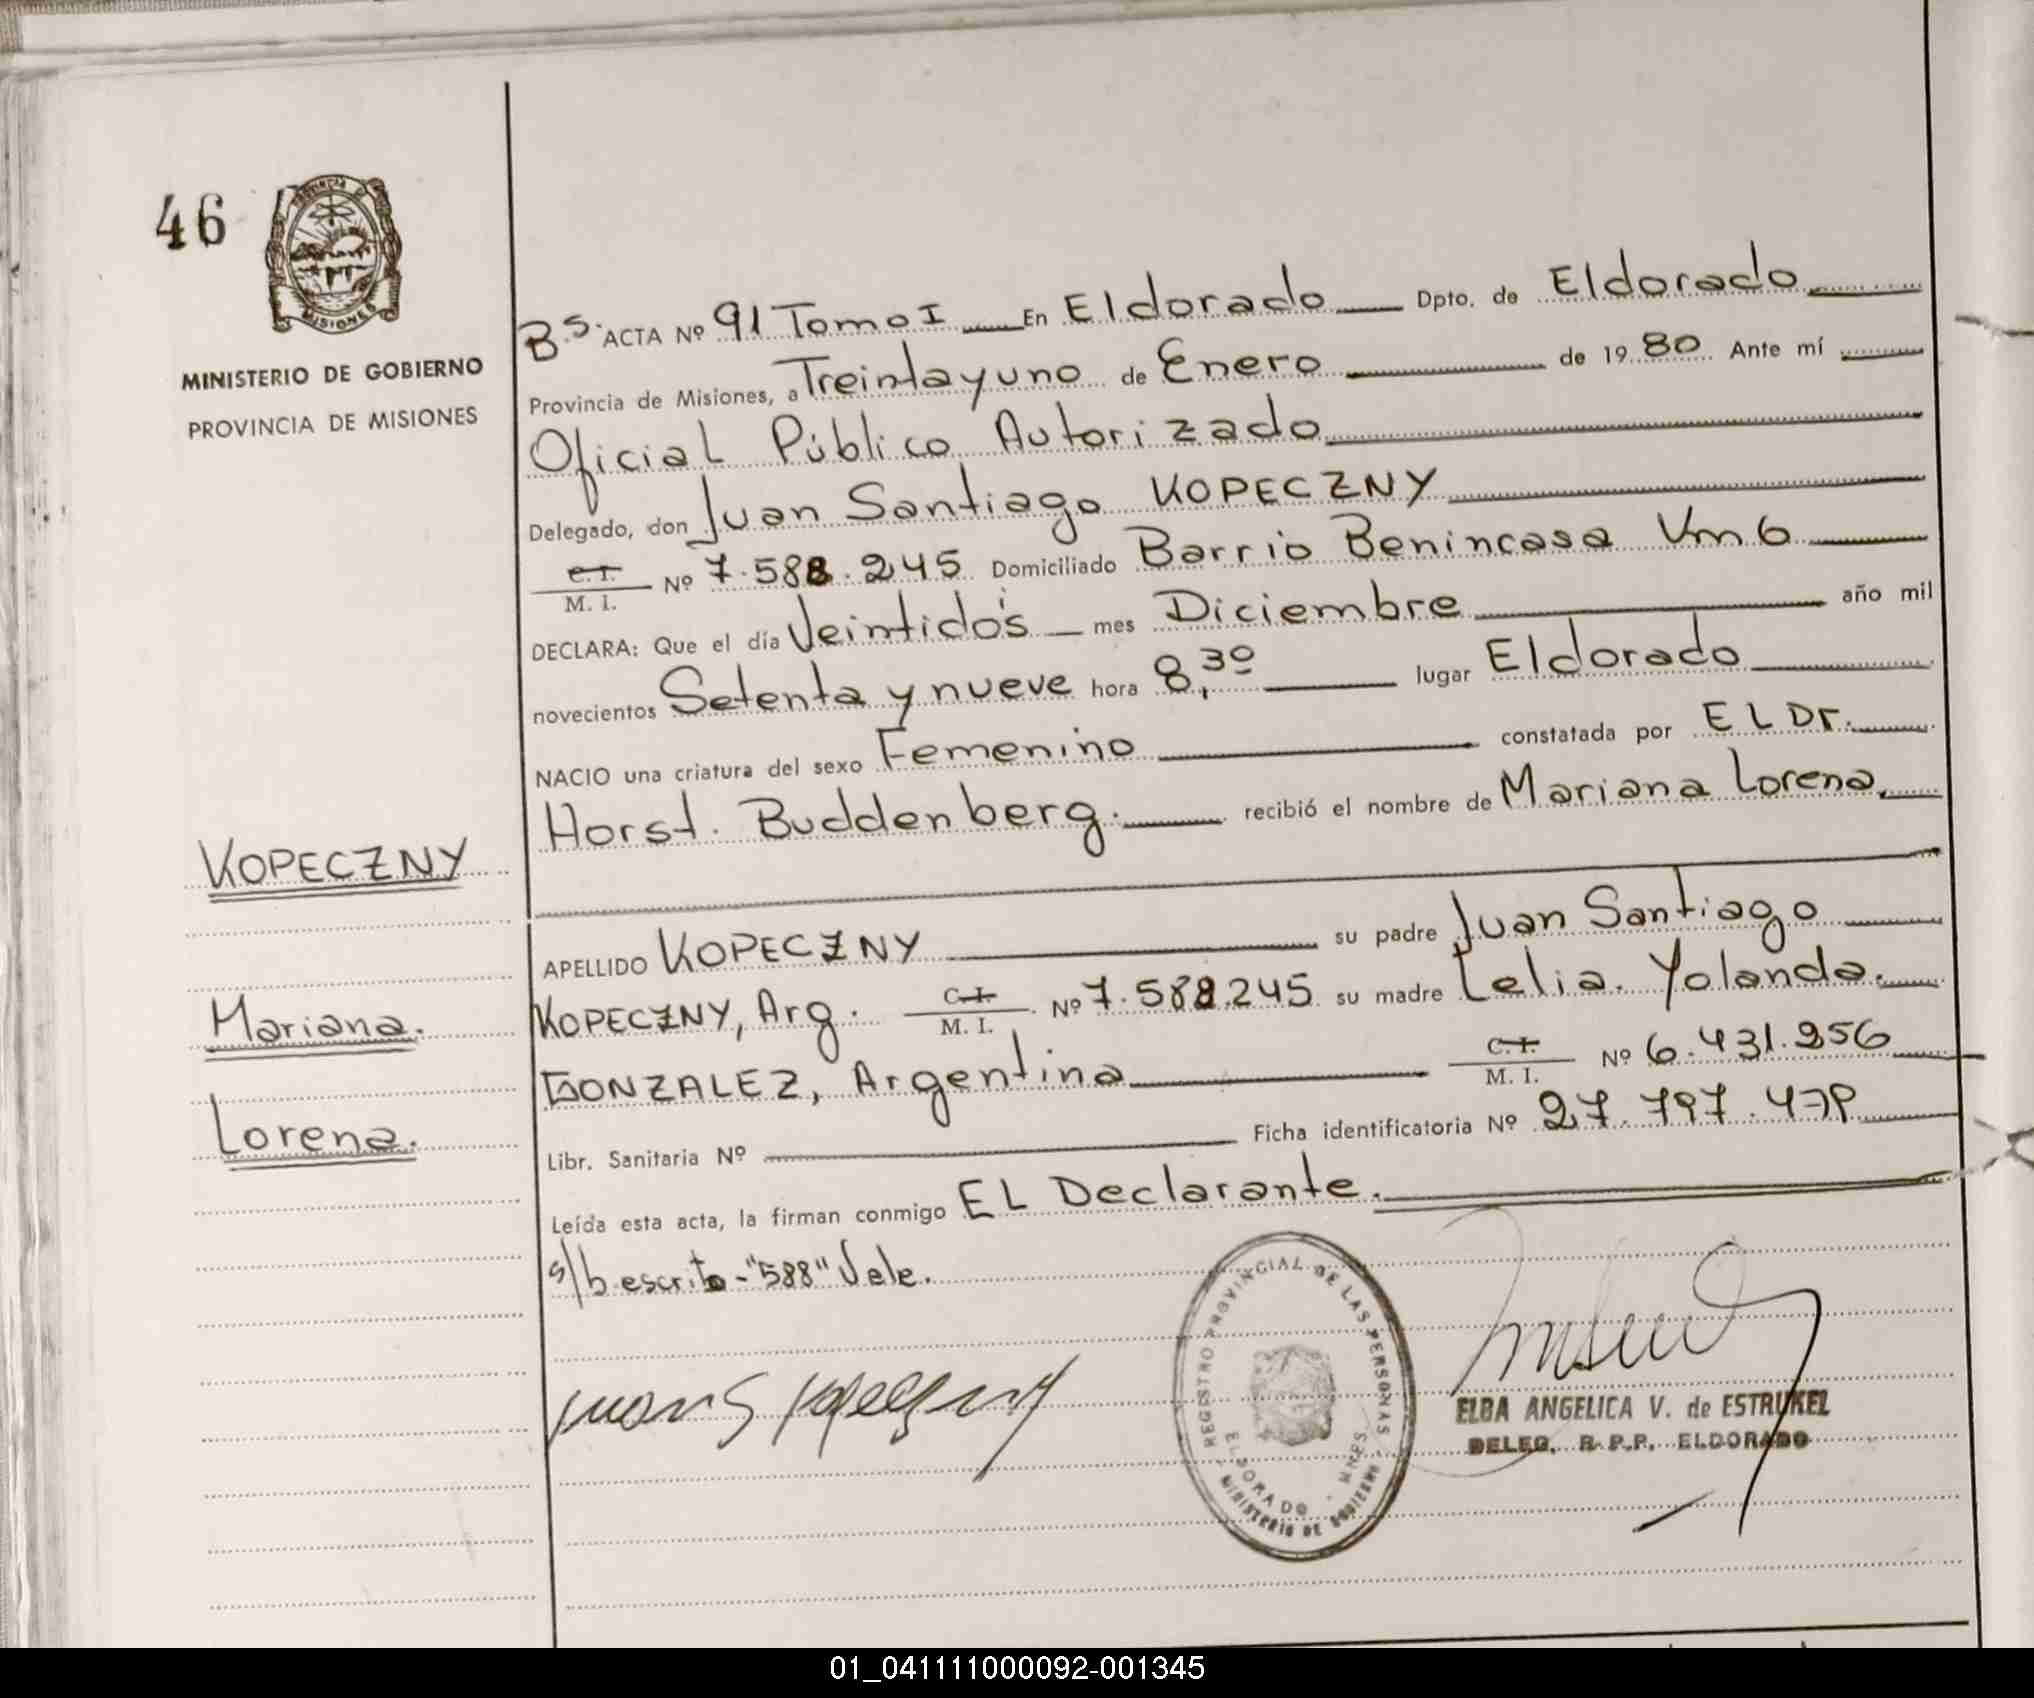 46
PROVINCIA DE
MISIONES
MINISTERIO DE GOBIERNO
PROVINCIA DE MISIONES
Bs. ACTA Nº 91 Tomo I En Eldorado Dpto. de Eldorado
Provincia de Misiones, a Treintayuno de Enero de 1980 Ante mí
Oficial Público Autorizado
Delegado, don Juan Santiago KOPECZNY
C.I. / M. I. Nº 7.588.245 Domiciliado Barrio Benincasa Km 6
DECLARA: Que el día Veintidós mes Diciembre año mil
novecientos Setenta y nueve hora 8,30 lugar Eldorado
NACIO una criatura del sexo Femenino constatada por EL Dr.
Horst. Buddenberg. recibió el nombre de Mariana Lorena.
KOPECZNY
Mariana.
Lorena.
APELLIDO KOPECZNY su padre Juan Santiago
KOPECZNY, Arg. C.I. / M. I. Nº 7.588.245 su madre Lelia Yolanda.
GONZALEZ, Argentina C.I. / M. I. Nº 6.431.256
Libr. Sanitaria Nº Ficha identificatoria Nº 27.797.
Leída esta acta, la firman conmigo EL Declarante.
s/b escrito - "588" Vale.
Juan S Kopeczny
REGISTRO PROVINCIAL DE LAS PERSONAS
ELDORADO - MNES.
MINISTERIO DE GOBIERNO
ELBA ANGELICA V. de ESTRUKEL
DELEG. R.P.P. ELDORADO
01_041111000092-001345